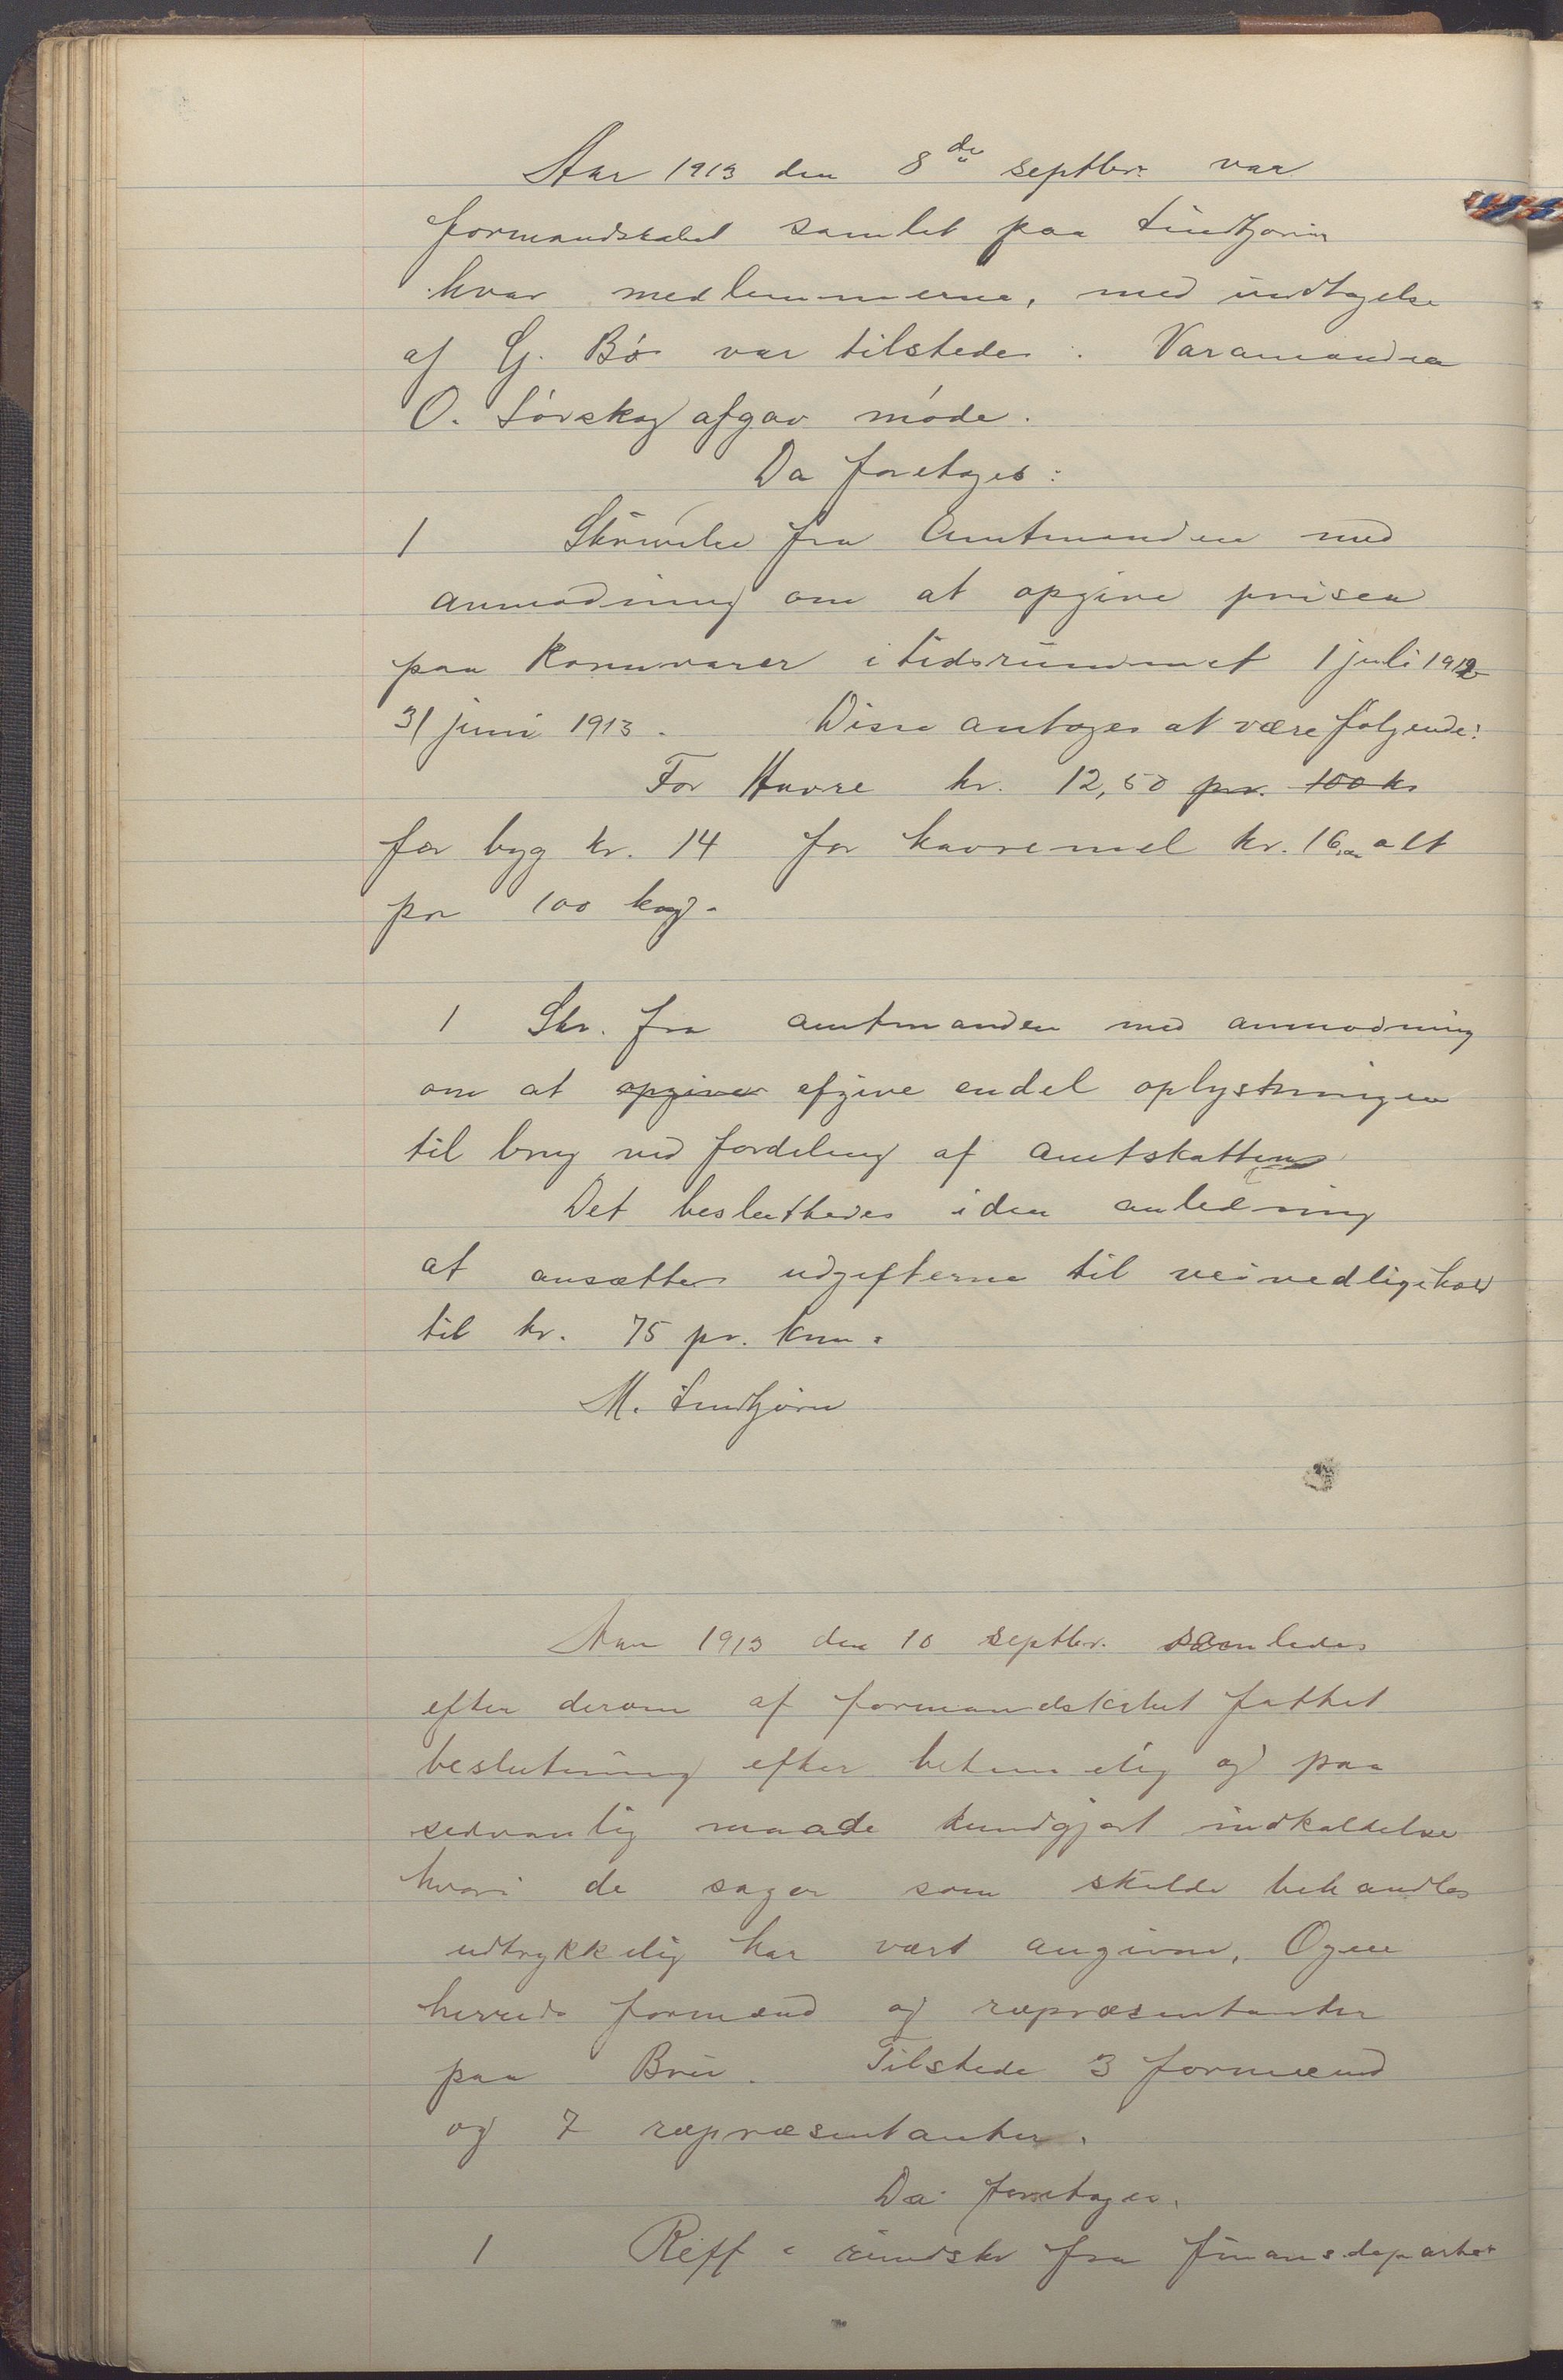 Aar 1913 den 8de septbr. var
formandskabet samlet paa Lindtjørn
hvor medlemmerne, med undtagelse
af G. Bø var tilstede. Varamanden
O. Løvskog afgav møde.
Da foretoges:
1 Skrivelse fra Amtmanden med
anmodning om at opgive prisen
paa kornvarer i tidsrummet 1 juli 1912
31 juni 1913. Disse antoges at være følgende:
For Havre kr. 12,50 pr. 100 k
for byg kr. 14 for havremel kr. 16,00 alt
pr 100 kog.
1 Skr. fra amtmanden med anmodning
om at opgiver afgive endel oplysninger
til brug ved fordeling af amtskatten
Det besluttedes i den anledning
at ansætte udgifterne til veivedligehold
til kr. 75 pr. km.
M. Lindtjørn
Aar 1913 den 10 septbr. samledes
efter derom af formandskabet fattet
beslutning efter betimelig og paa
sedvanlig maade kundgjort indkaldelse
hvori de sager som skulde behandles
udtrykkelig har vært angivne, Ogne
herreds formænd og repræsentanter
paa Brue. Tilstede 3 formænd
og 7 repræsentanter.
Da foretoges.
1 Reff. rundskr fra finansdepartet